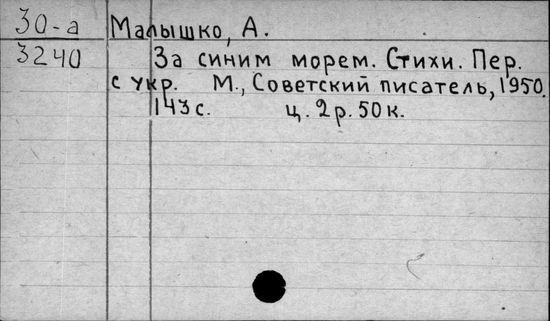 30-а Малышко, А.
3240 За синим морем. Стихи. Пер.
с укр. М., Советский писатель, 1950.
143 с. ц. 2 р. 50 к.